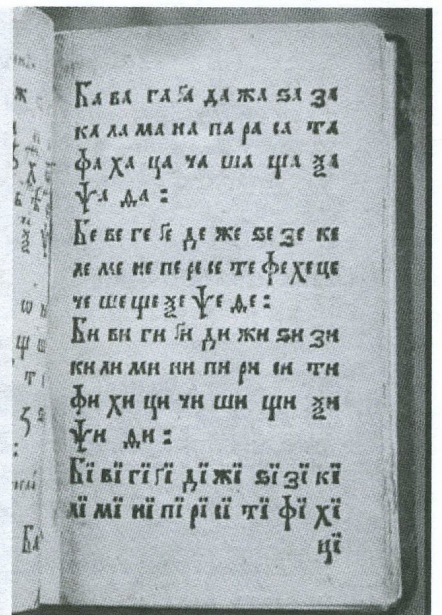 Ба ва га ґа да жа ѕа за
ка ла ма на па ра са та
фа ха ца ча ша ща ѯа
ѱа да :
Бе ве ге ґе де же ѕе зе ке
ле ме не пе ре се те фе хе це
че ше ще ѯе ѱе де :
Би ви ги ґи ди жи ѕи зи
ки ли ми ни пи ри си ти
фи хи ци чи ши щи ѯи
ѱи ди :
Бї вї гї ґї дї жї ѕї зї кї
лї мї нї пї рї сї тї фї хї
цї